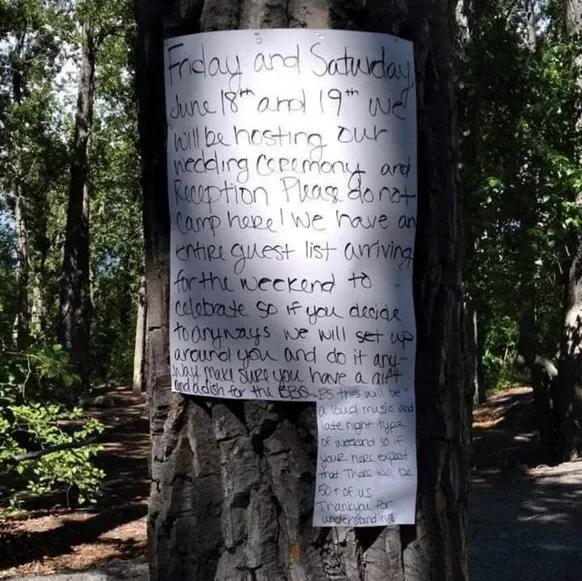 Friday and Saturday,
June 18th and 19th we
will be hosting our
wedding Ceremony and
Reception Please do not
Camp here! We have an
entire guest list arriving
for the weekend to
celebrate so if you decide
to anyways we will set up
around you and do it any-
way make sure you have a gift
and a dish for the BBQ.
PS this will be
a loud music and
late night type
of weekend so if
your here expect
that There will be
50+ of us
Thankyou for
understanding